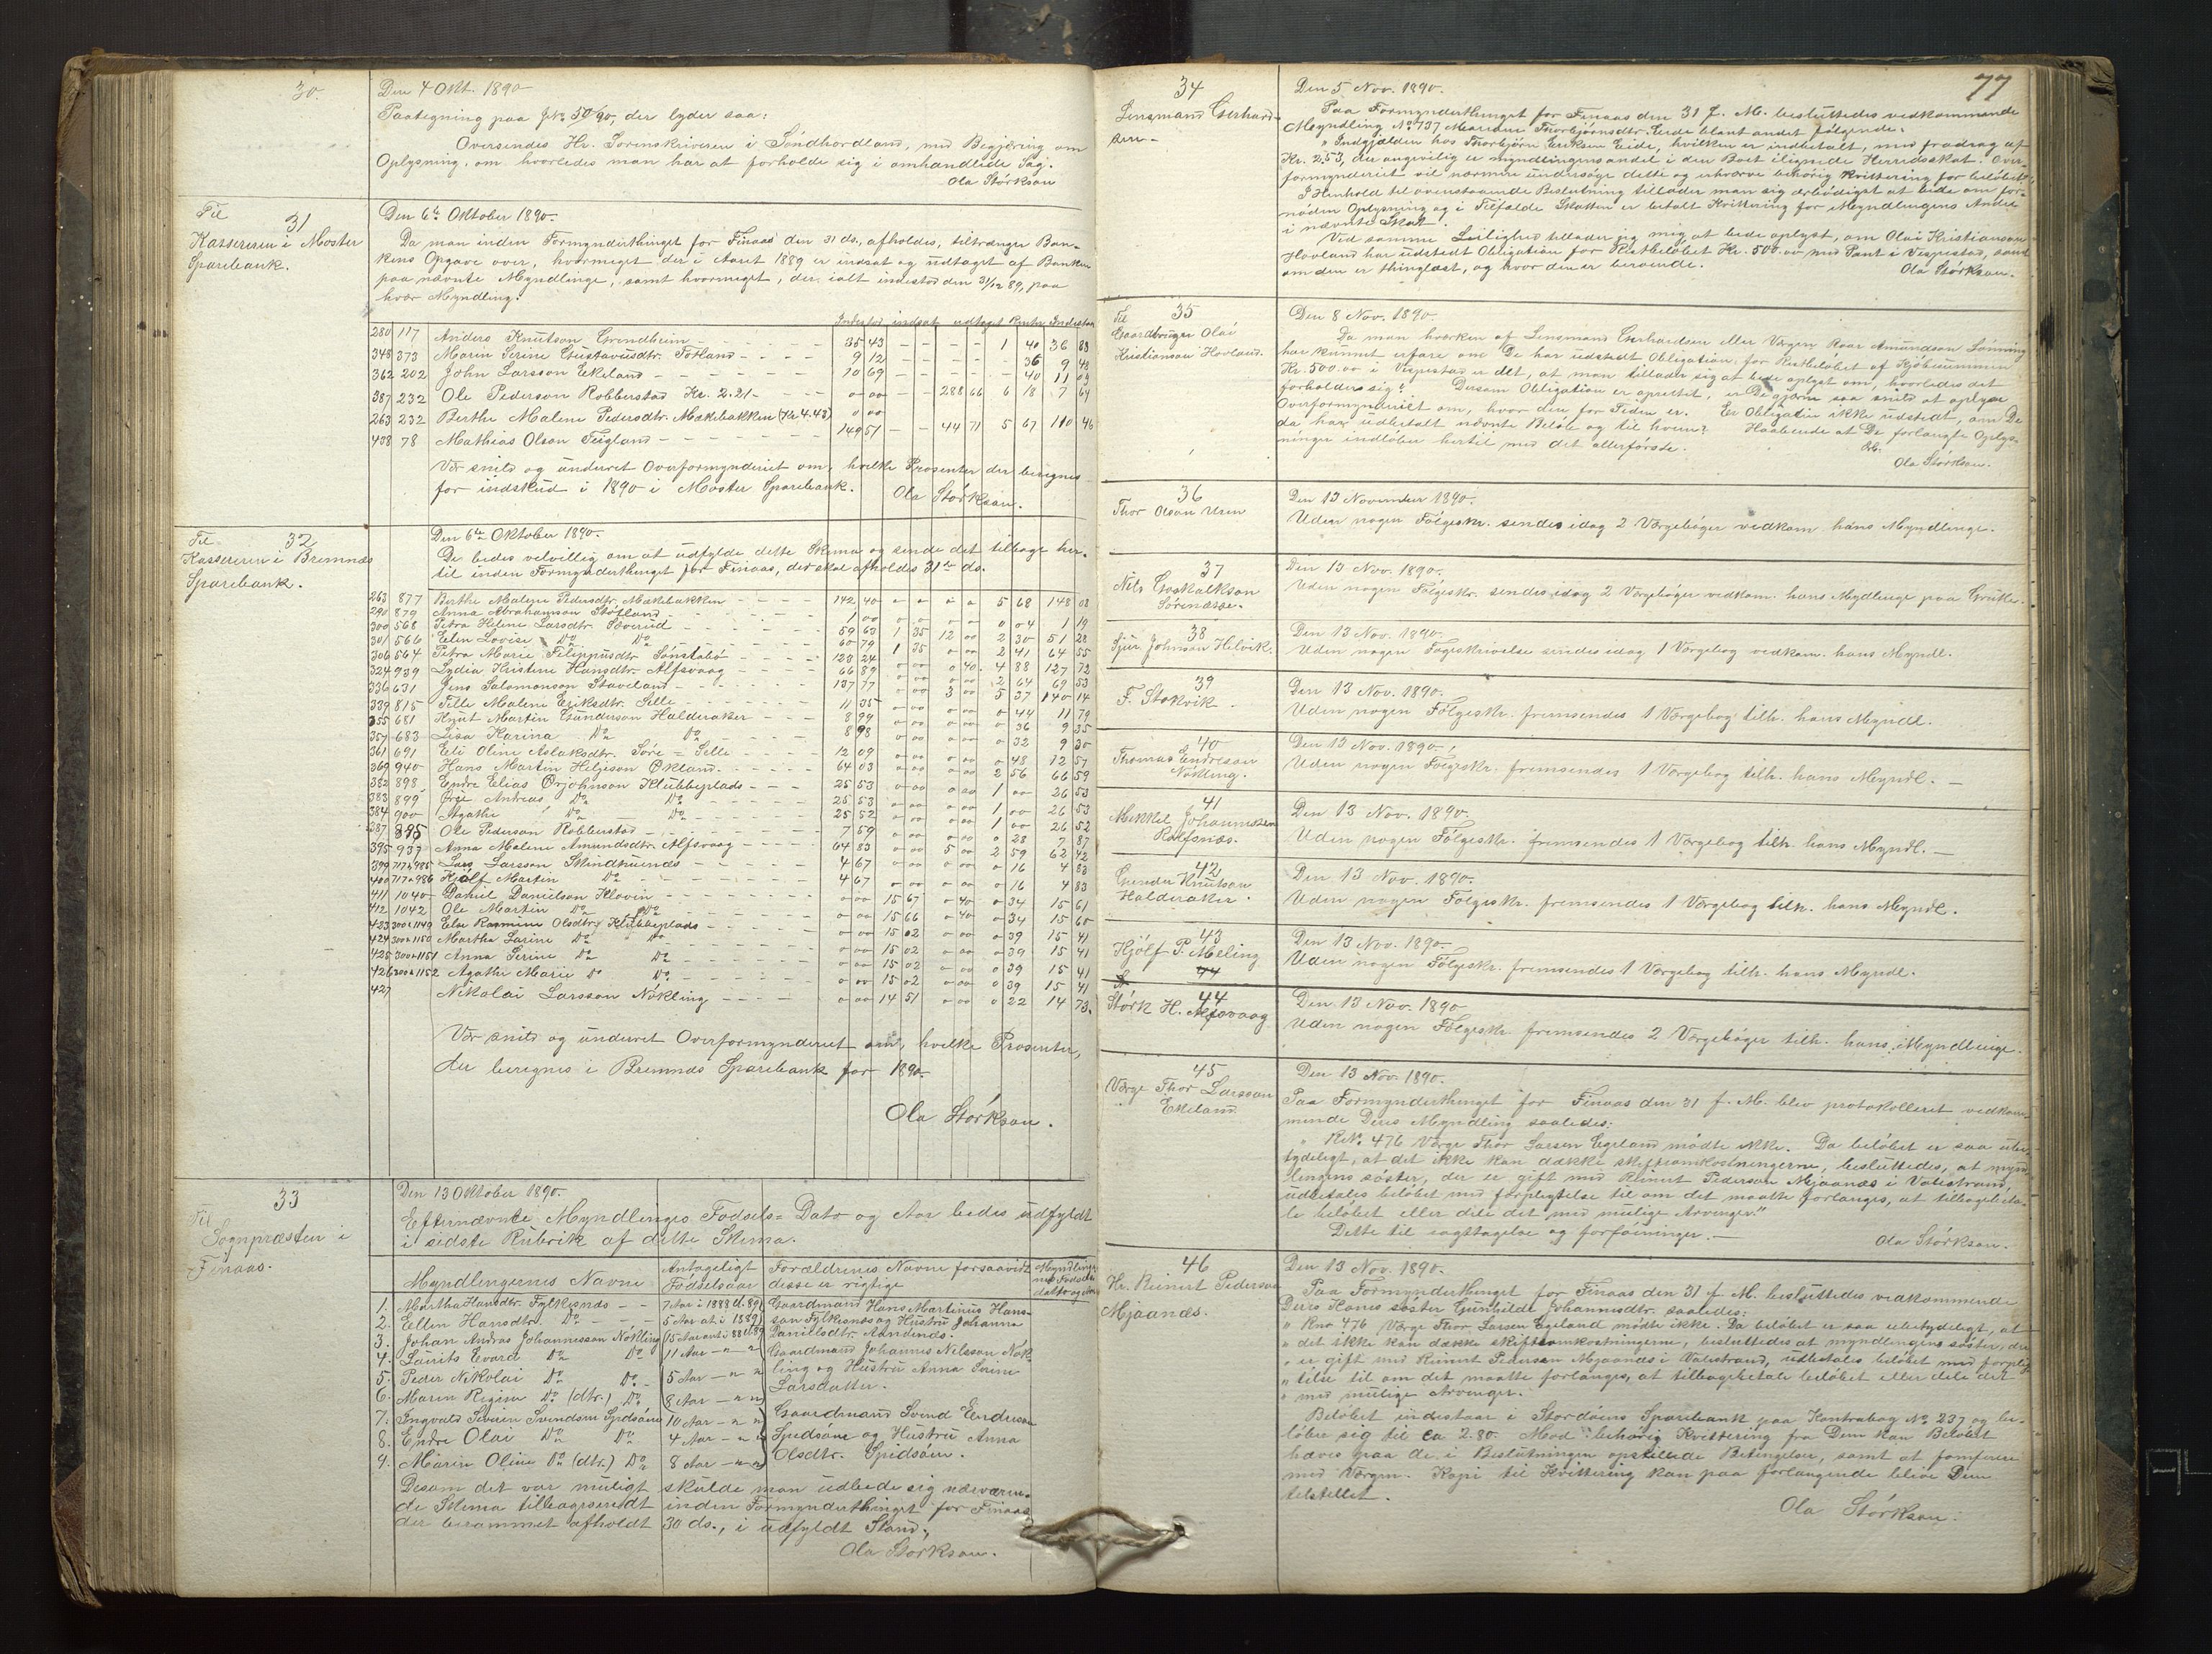 30.
Den 4 Okt. 1890
Paategning paa J.No 50/90, der lyder saa:
Oversendes Hr. Sorenskriveren i Söndhordland, med Begjæring om
Oplysning, om hvorledes man har at forholde sig i omhandlede Sag.
Ola Störkson
31
Til
Kassereren i Moster
Sparebank.
Den 6te Oktober 1890.
Da man inden Formynderthinget for Finaas den 31 ds., afholdes, tiltrænger Ban-
kens Opgave over, hvormeget der i Aaret 1889 er indsat og udtaget af Banken
paa nævnte Myndlinge, samt hvormeget, der ialt indestod den 31/12 89, paa
hver Myndling:
Indestod indsat udtaget Renter Indestaar
280 117 Anders Knutson Grindheim - 35 43 - - - - 1 40 36 83
348 373 Marin Serine Gustavusdtr. Totland - - - - 9 12 - - - - 36 9 48
362 202 John Larsson Eikeland - - - - 10 69 - - - - 40 11 09
387 232 Ole Pederson Robberstad Kr. 2.21 - - - - 0 00 - - 288 66 6 18 7 64
263 232 Berthe Malene Pedersdtr. Mækebakken (Kr 4.48) 0 00
408 78 Mathias Olson Teigland - - - - 149 51 - - 44 71 5 67 110 46
Vær snild og underret Overformynderiet om, hvilke Prosenter der beregnes
for indskud i 1890 i Moster Sparebank.
Ola Störkson.
32
Til
Kassereren i Bremnæs
Sparebank.
Den 6te Oktober 1890.
De bedes velvillig om at udfylde dette Skema og sende det tilbage her-
til inden Formynderthinget for Finaas, der skal afholdes 31te ds.
263 877 Berthe Malene Pedersdtr. Mækebakken - - - 142 40 - - - - 5 68 148 08
290 879 Anna Abrahamson Stötland - - - 1 00 0 04 1 19
300 568 Petra Helene Larsdtr. Sæverud - - - 59 63 1 35 12 00 2 30 51 28
301 566 Elen Lovise Do Do - - - 60 79 1 35 0 00 2 41 64 55
306 564 Petra Marie Filippusdtr Sönstabö - - - 123 24 0 00 0 40 4 88 127 72
324 939 Lydia Kristine Hansdtr. Alfsvaag - - - 66 89 0 00 0 00 2 64 69 53
336 631 Jens Salomonson Staveland - - - 137 77 0 00 3 00 5 37 140 14
339 815 Tille Malene Eriksdtr. Selle - - - 11 35 0 00 0 44 11 79
355 681 Knut Martin Gunderson Halderaker - - - 8 99 0 00 0 36 9 35
357 683 Lisa Karina Do Do - - - 8 98 0 00 0 32 9 30
361 691 Eli Oline Aslaksdtr. Söre-Selle - - - 12 09 0 00 0 48 12 57
369 940 Hans Martin Heljeson Ökland - - - 64 03 0 00 2 56 66 59
382 898 Endre Elias Örjohnson Klubbeplads - - - 25 53 0 00 1 00 26 53
383 899 Örge Andreas Do Do - - - 25 53 0 00 1 00 26 53
384 900 Agathe Do Do - - - 25 52 0 00 1 00 26 52
387 895 Ole Pederson Robberstad - - - 7 59 0 00 0 28 7 87
395 937 Anna Malene Amundsdtr. Alfsvaag - - - 64 83 0 00 5 00 2 59 62 42
399 717 & 985 Lars Larsson Skimmernæs - - - 4 67 0 00 0 00 0 16 4 83
400 717 & 986 Kjölf Martin Do - - - 4 67 0 00 0 00 0 16 4 83
411 1040 Daniel Danielson Klovin - - - 0 00 15 67 0 40 0 34 15 61
412 1042 Ole Martin Do Do - - - 0 00 15 66 0 40 0 34 15 60
423 300 & 1149 Else Rasmine Olsdtr. Klubbeplads - - - 0 00 15 02 0 00 0 39 15 41
424 300 & 1150 Martha Sarine Do Do - - - 0 00 15 02 0 00 0 39 15 41
425 300 & 1151 Anna Serine Do Do - - - 0 00 15 02 0 00 0 39 15 41
426 300 & 1152 Agathe Marie Do Do - - - 0 00 15 02 0 00 0 39 15 41
427 Nikolai Larsson Nökling - - - 0 00 14 51 0 00 0 22 14 73.
Vær snild og underret Overformynderiet om, hvilke Prosenter,
der beregnes i Bremnæs Sparebank for 1890.
Ola Störkson.
33
Til
Sognpræsten i
Finaas.
Den 13 Oktober 1890.
Efternævnte Myndlinges Födsels-Dato og Aar bedes udfyldt
i sidste Rubrik af dette Skema.
Myndlingernes Navne Antageligt Födselsaar Forældrenes Navne forsaavidt disse er rigtige Myndlingernes Födselsdatto og Aar
1. Martha Hansdtr. Fylkesnæs - - 7 Aar i 1888 el. 89 Gaardmand Hans Martinus Han-
2. Ellen Hansdtr. Do - - 5 Aar at i 1889 son Fylkesnæs og Hustru Johanna
3. Johan Andras Johannesson Nökling 15 Aar ant i 88 el 89 Danielsdtr. Aandenæs.
4. Laurits Evard Do Do 11 Aar - " " Gaardmand Johannes Nilsson Nök-
5. Peder Nikolai Do Do 5 Aar - " " ling og Hustru Anna Serine
6. Marin Regina Do (dtr.) Do 8 Aar - " " Larsdatter.
7. Ingvald Severin Svendson Spidsöen 10 Aar - " " Gaardmand Svend Enderson
8. Endre Olai Do Do 4 Aar - " " Spidsöen og Hustru Anna
9. Marin Oline Do (dtr.) Do 8 Aar - " " Olsdtr. Spidsöen.
Desom det var muligt skulde man udbede sig nærværen-
de Skema tilbagesendt inden Formynderthinget for Finaas
der berammet afholdt 30 ds., i udfyldt Stand.
Ola Störkson.
77
34
Lensmand Gerhard-
sen -
Den 5 Nov. 1890.
Paa Formynderthinget for Finaas den 31 f. M. besluttedes vedkommende
Myndling No 737 Mearine Thorbjörnsdtr. Eide blant andet fölgende:
" Indgjælden hos Thorbjörn Eriksen Eide, hvilken er indbetalt, med fradrag af
Kr. 2.53, der angivelig er myndlingens andel i den Boet ilignede Herredsskat. Over-
formynderiet vil nærmere undersöge dette og erhverve behörig kvittering for belöbet."
I Henhold til ovenstaaende Beslutning tillader man sig ærbödigst at bede om for-
nöden Oplysning og i Tilfælde Skatten er betalt Kvittering for Myndlingens Andel
i nævnte Skat.
Ved samme Leilighed tillader jeg mig at bede oplyst, om Olai Kristianson
Hovland har udstedt Obligation for Restbelöbet Kr. 500.00 med Pant i Vespestad, samt
om den er thinglæst, og hvor den er beroende.
Ola Störkson.
35
Til
Gaardbruger Olai
Kristianson Hovland.
Den 8 Nov. 1890.
Da man hverken af Lensmand Gerhardsen eller Værgen Roar Amundson Lönning
har kunnet erfare om De har udstedt Obligation for Restbelöbet af Kjöbesummen
Kr. 500.00 i Vespestad er det, at man tillader sig at bede oplyst om, hvorledes det
forholder sig? Dersom Obligation er oprettet, er De gjerne saa snild at oplyse
Overformynderiet om, hvor den for Tiden er. Er Obligation ikke udstedt, om De
da har udbetalt nævnte Belöb og til hvem? Haabende at De forlangte Oplys-
ninger indlöber hertil med det allerförste.
Erb.
Ola Störkson.
36
Thor Olson Uren
Den 13 November 1890.
Uden nogen Fölgeskr. sendes idag 2 Værgeböger vedkom hans Myndlinge.
37
Nils Goskalkson
Sörenæsse.
Den 13 Nov. 1890.
Uden nogen Fölgeskr. sendes idag 2 Værgeböger vedkom. hans Mydlinge paa Gruke.
38
Sjur Johnson Helvik.
Den 13 Nov. 1890.
Uden nogen Fögeskrivelse sendes idag 1 Værgebog vedkom. hans Myndl.
39
F. Stokvik.
Den 13 Nov. 1890.
Uden nogen Fölgeskr. fremsendes 1 Værgebog tilh. hans Myndl.
40
Thomas Endreson
Nökling.
Den 13 Nov. 1890.
Uden nogen Fölgeskr. fremsendes 1 Værgebog tilh. hans Myndl. -
41
Mikkel Johannesen
Rolfsnæs.
Den 13 Nov. 1890.
Uden nogen Fölgeskr. fremsendes 1 Værgebog tilh. hans Myndl. -
42
Gunder Knutson
Halderaker.
Den 13 Nov. 1890.
Uden nogen Fölgeskr. fremsendes 1 Værgebog tilh. hans Myndl.
43
Hjölf P. Meling
Den 13 Nov. 1890.
Uden nogen Fölgeskr. fremsendes 1 Værgebog tilh. hans Myndl.
44
44
Störk H. Alfsvaag
Den 13 Nov. 1890
Uden nogen Fölgeskr. fremsendes 2 Værgeböger tilh. hans Myndlinge.
45
Værge Thor Larsson
Ekeland
Den 13 Nov. 1890.
Paa Formynderthinget for Finaas den 31 f. M. blev protokolleret vedkom-
mende Deres Myndling saaledes:
" RNo. 476 Værge Thor Larsen Egeland mödte ikke. Da belöbet er saa ube-
tydeligt, at det ikke kan dække skifteomkostningerne, besluttedes, at mynd-
lingens söster, der er gift med Reinert Pederson Mjaanæs i Valestrand,
udbetales belöbet med forpligtelse til om det maatte forlanges, at tilbagebeta-
le belöbet eller dele det med mulige Arvenger."
Dette til iagttagelse og forföininger. -
Ola Störkson.
46
Hr. Reinert Pederson
Mjaanæs.
Den 13 Nov. 1890.
Paa Formynderthinget for Finaas den 31 f. M. besluttedes vedkommende
Deres Kones söster Gunhilde Johannesdtr. saaledes:
" Rno 476 Værge Thor Larsen Egeland mödte ikke. Da belöbet er saa ubetydeligt, at
" det ikke kan dække skifteomkostningerne, besluttedes at myndlingens söster, der
" er gift med Reinert Pedersen Mjaanæs i Valestrand, udbetales belöbet med forplig-
" telse til om det maatte forlanges, at tilbagebetale belöbet eller dele det
" med mulige Arvenger.
Belöbet indestaar i Stordöens Sparebank paa Kontrabog No 237 og be-
löber sig til ca 2.80. Mod behörig Kvittering fra Dem kan Belöbet
hæves paa de i Beslutningen opstillede Betingelser, samt at konferere
med Værgen. Kopi til Kvittering kan paa forlangende blive Dem
tilstillet.
Ola Störkson.